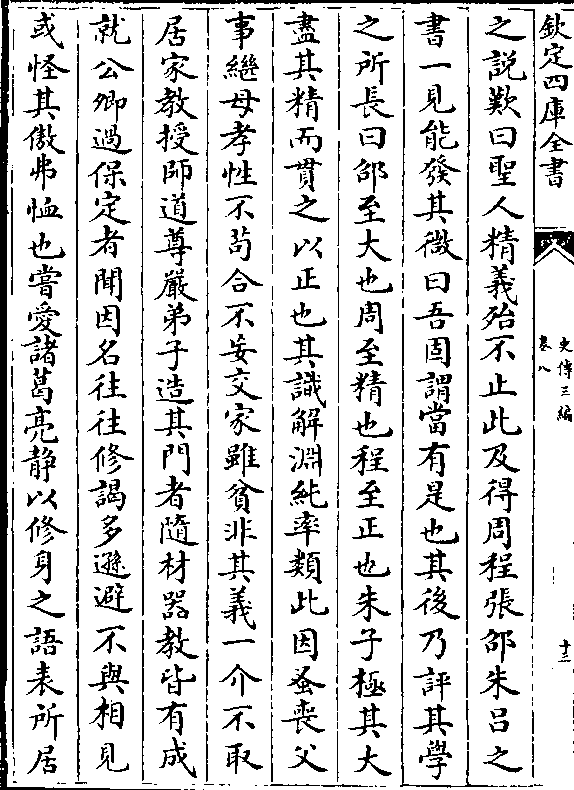 欽定四庫全書
史傳三編
卷八
十三
之說歎曰聖人精義殆不止此及得周程張邵朱呂之
書一見能發其微曰吾固謂當有是也其後乃評其學
之所長曰邵至大也周至精也程至正也朱子極其大
盡其精而貫之以正也其識解淵純率類此因蚤喪父
事繼母孝性不茍合不妄交家雖貧非其義一介不取
居家教授師道尊嚴弟子造其門者隨材器教皆有成
就公卿過保定者聞因名往往修謁多遜避不與相見
或怪其傲弗恤也嘗愛諸葛亮静以修身之語表所居